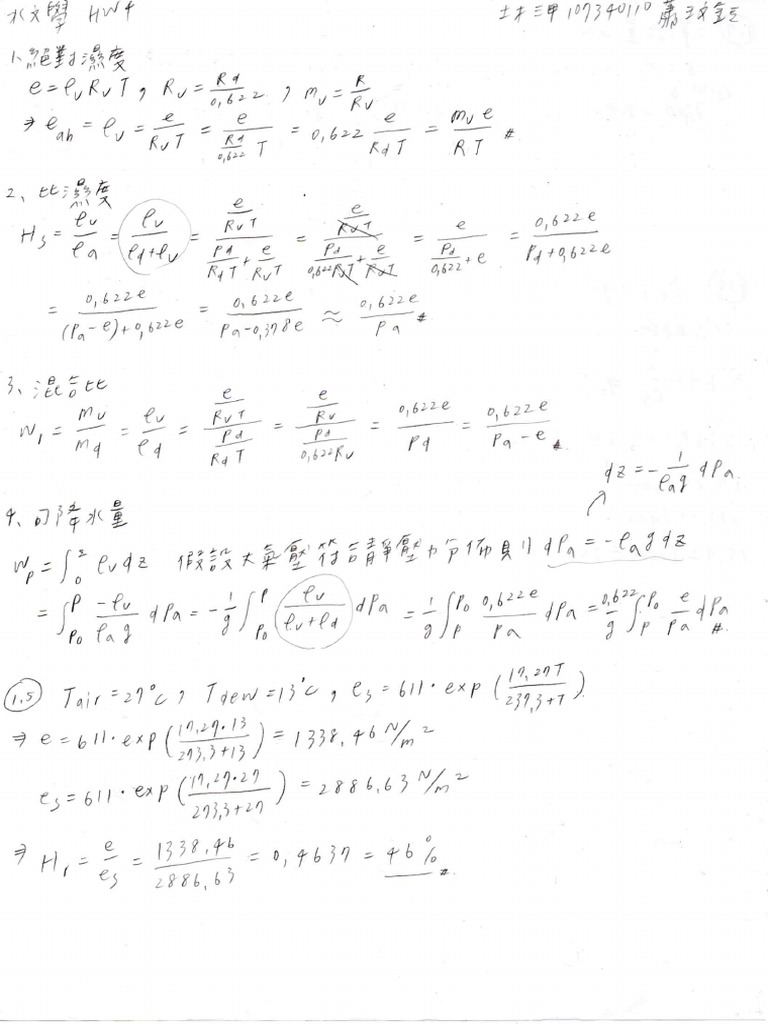 水文學 HW4 土木三甲 107340110
1、絕對濕度
e = ρvRvT , Rv = Rd/0.622 , mv = R/Rv
⇒ eab = ρv = e/(RvT) = e/((Rd/0.622)T) = 0.622 e/(RdT) = mv e/(RT) #
2、比濕度
Hs = ρv/ρa = ρv/(ρd+ρv) = (e/(RvT))/(Pd/(RdT) + e/(RvT)) = (e/(RvT))/(Pd/(0.622RvT) + e/(RvT)) = e/(Pd/0.622 + e) = 0.622e/(Pd+0.622e)
= 0.622e/((Pa-e)+0.622e) = 0.622e/(Pa-0.378e) ≈ 0.622e/Pa #
3、混合比
W1 = mv/md = ρv/ρd = (e/(RvT))/(Pd/(RdT)) = (e/Rv)/(Pd/(0.622Rv)) = 0.622e/Pd = 0.622e/(Pa-e) #
dz = -1/(ρag) dPa
4、可降水量
Wp = ∫₀ᶻ ρv dz 假設大氣壓符合靜壓力分佈則 dPa = -ρa g dz
= ∫_P0^P -ρv/(ρag) dPa = -1/g ∫_P0^P ρv/(ρv+ρd) dPa = 1/g ∫_P^P0 0.622e/Pa dPa = 0.622/g ∫_P^P0 e/Pa dPa #
1.5 Tair = 27°C , Tdew = 13°C , es = 611·exp(17.27T/(237.3+T))
⇒ e = 611·exp(17.27·13/(273.3+13)) = 1338.46 N/m²
es = 611·exp(17.27·27/(273.3+27)) = 2886.63 N/m²
⇒ Hr = e/es = 1338.46/2886.63 = 0.4637 = 46% #